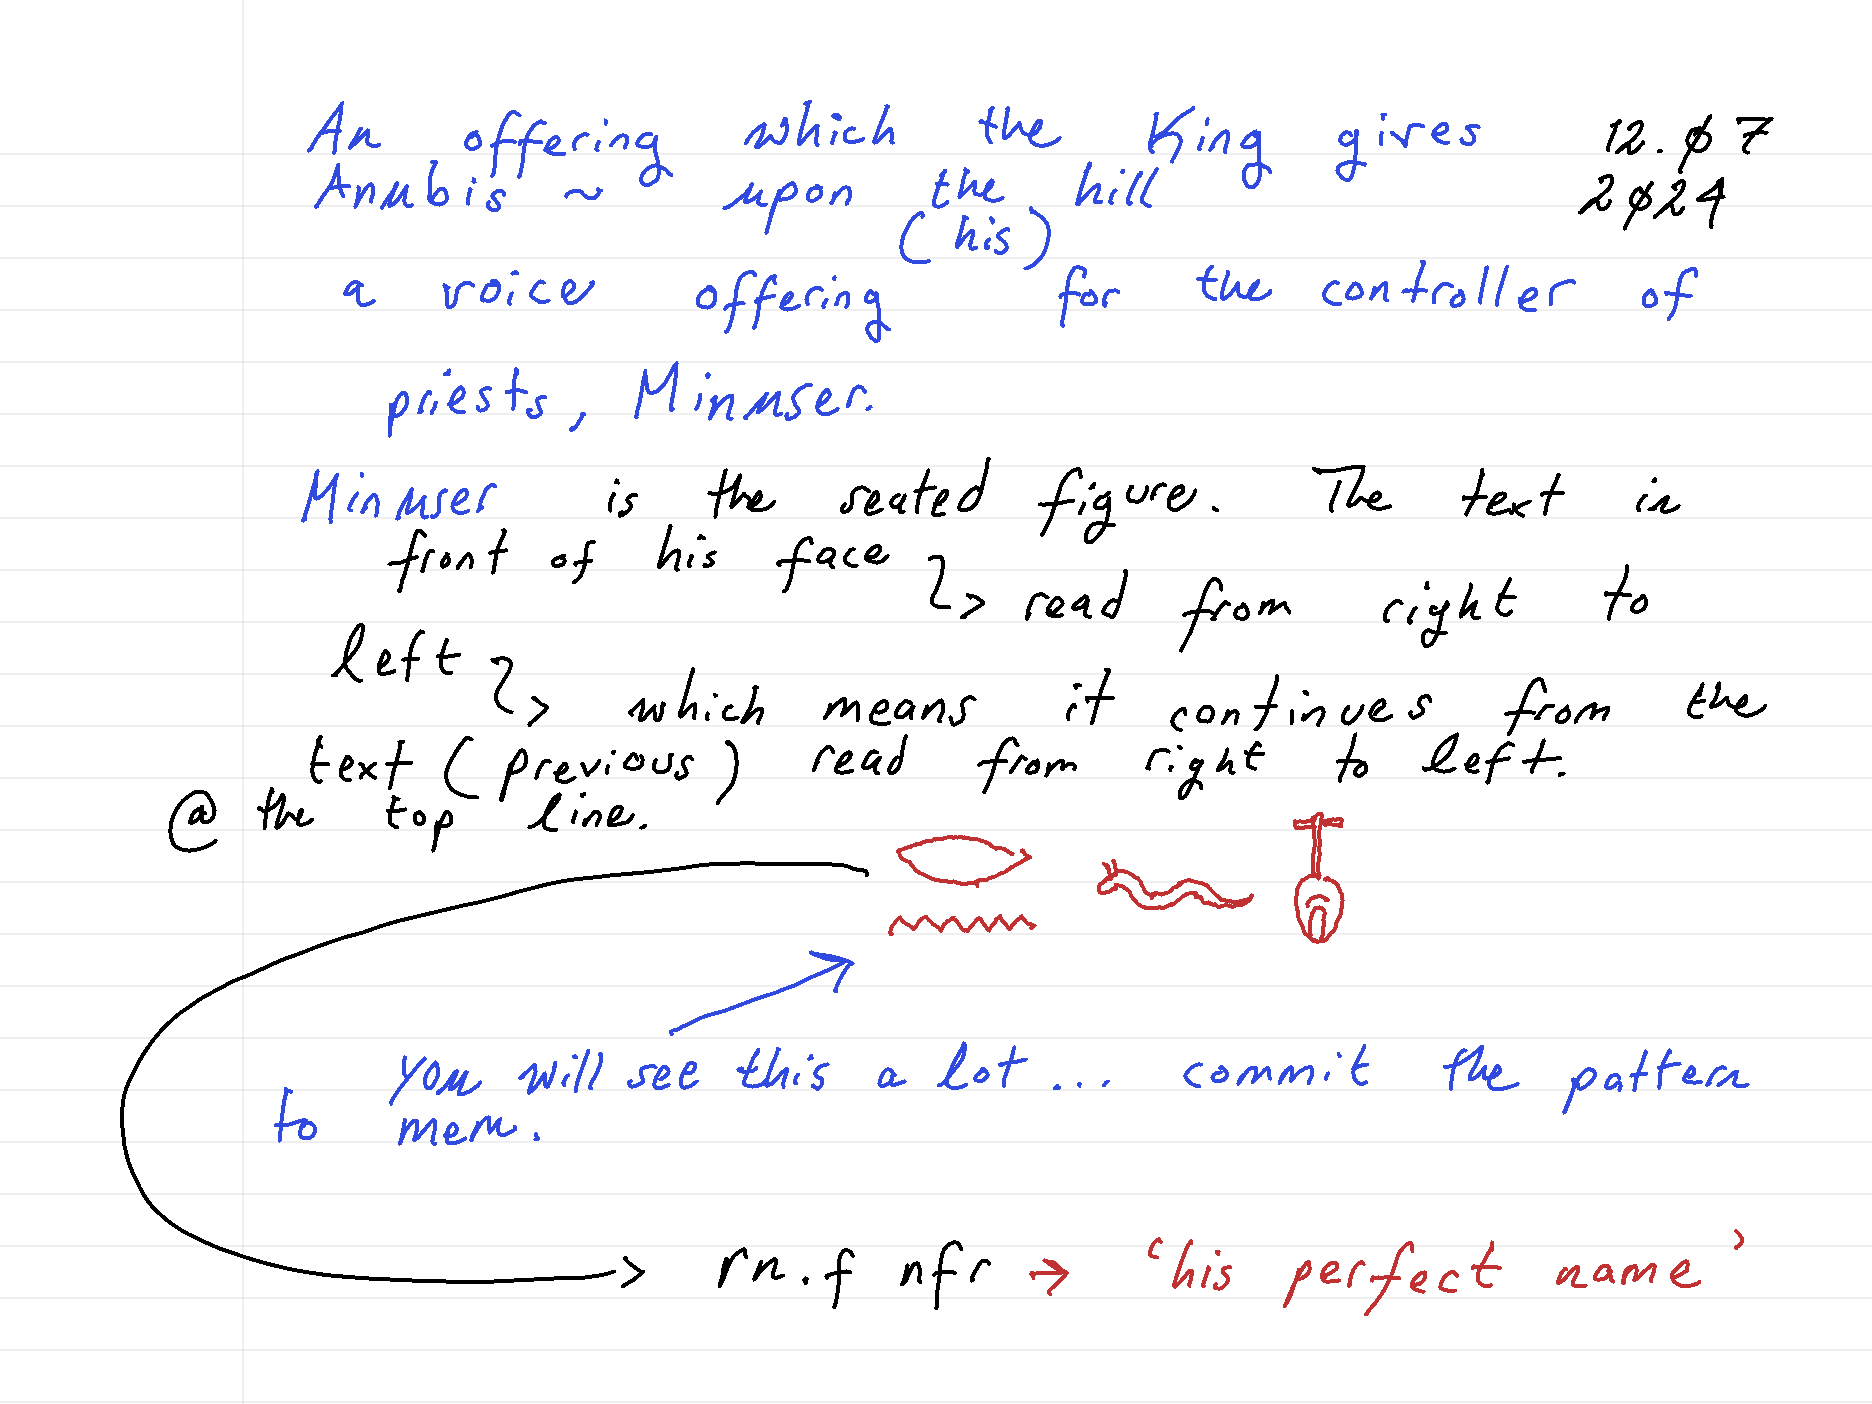 An offering which the King gives 12.ø7
Anubis ~ upon the hill 2ø24
(his)
a voice offering for the controller of
priests, Minuser.
Minuser is the seated figure. The text in
front of his face
↳ read from right to
left
↳ which means it continues from the
text (previous) read from right to left.
@ the top line.
𓂋𓈖 𓆑 𓄤
you will see this a lot... commit the pattern
to mem.
→ rn.f nfr → 'his perfect name'